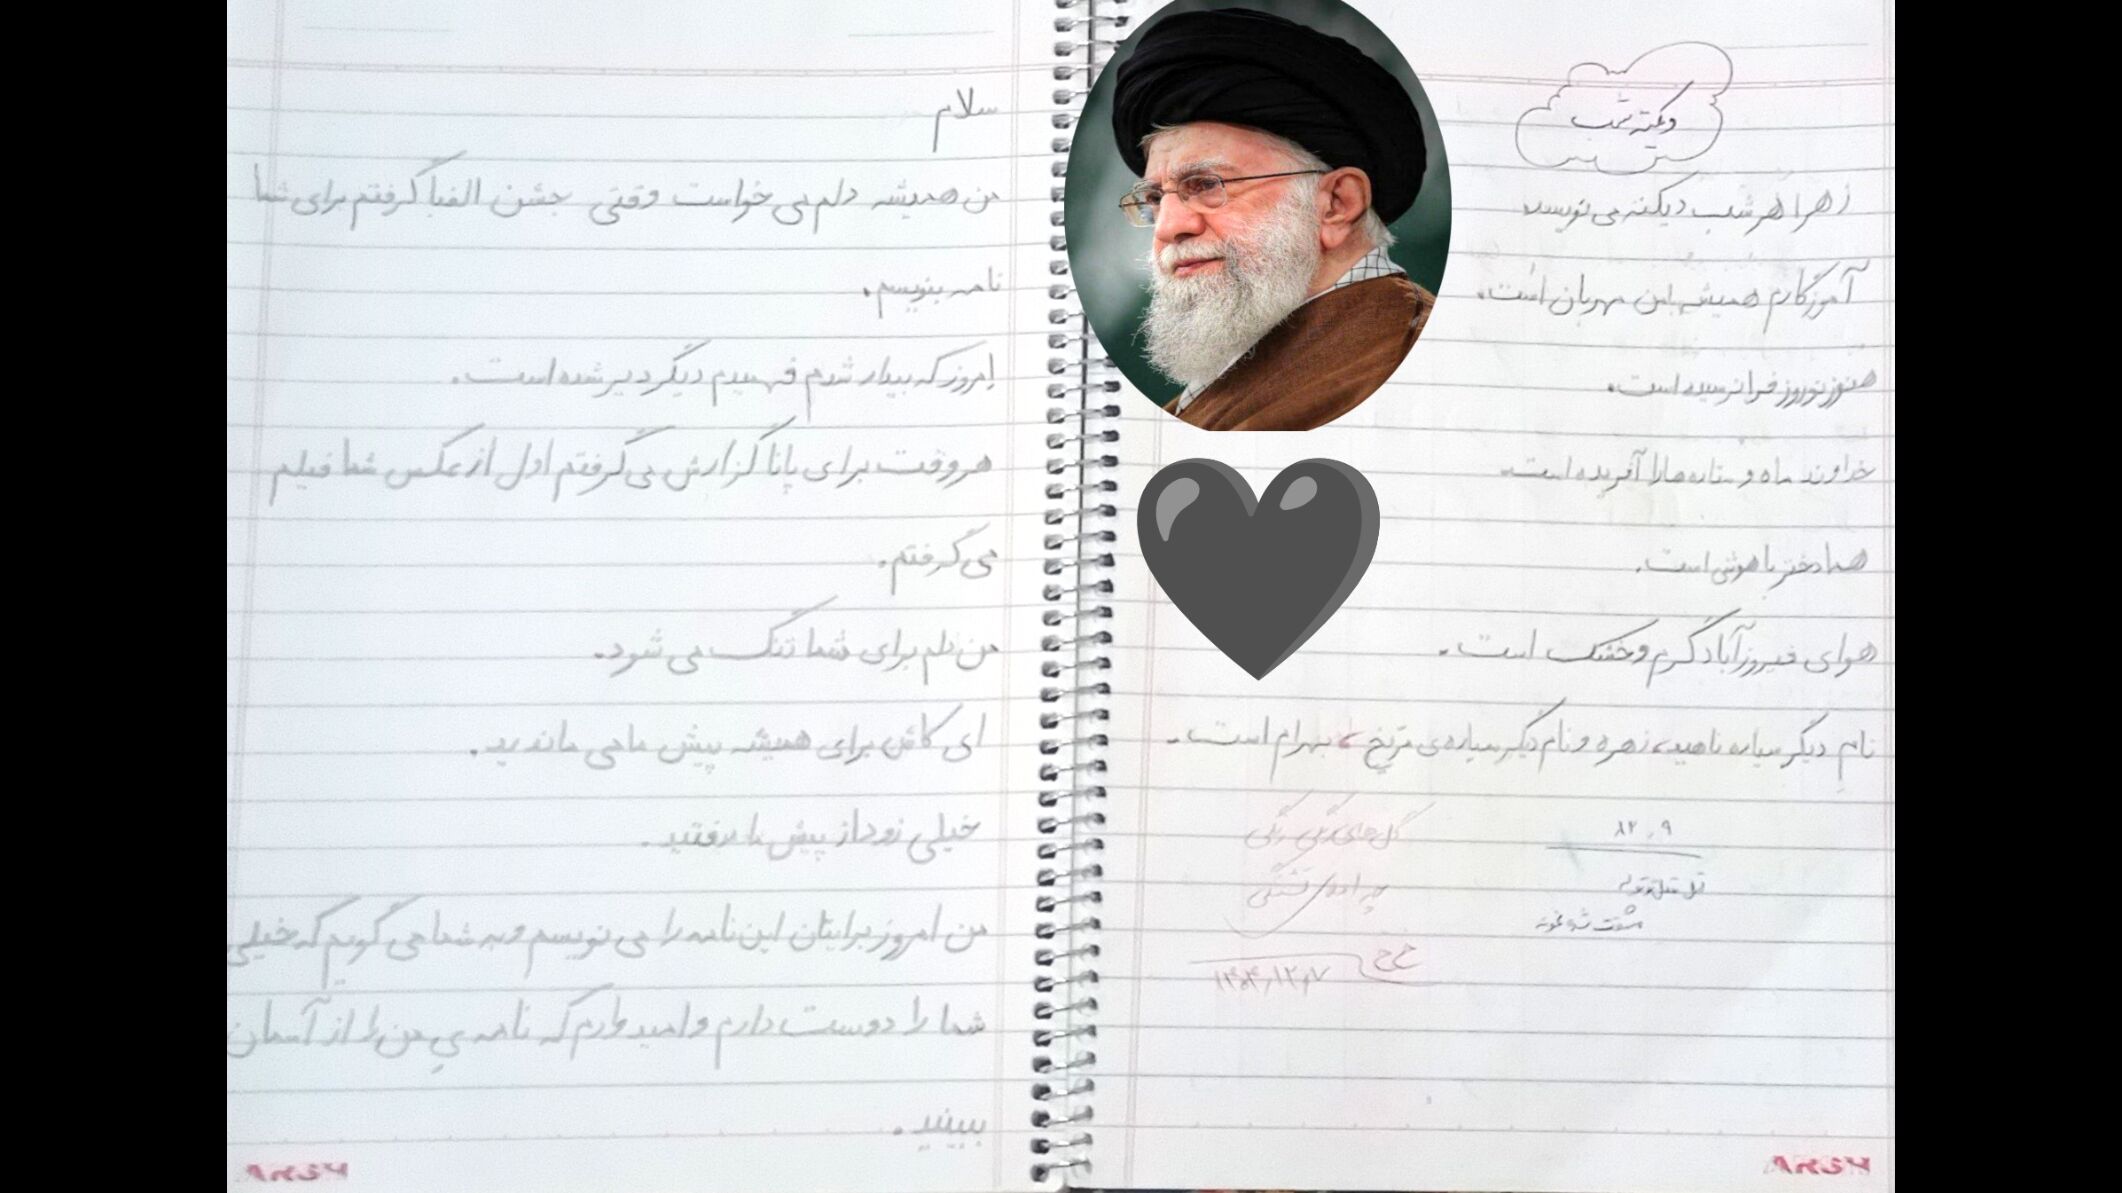 دیکته شب
زهرا هر شب دیکته می نویسد
آموزگارم همیشه این مهربان است.
هنوز نوروز فرا نرسیده است.
خداوند ماه و ستاره ها را آفریده است.
هما دختر باهوشی است.
هوای فیروزآباد گرم و خشک است.
نام دیگر سیاره ناهید، زهره و نام دیگر سیاره ی مریخ، بهرام است.
گل های رنگی رنگی
۱۴۰۴,۱۲,۷
سلام
من همیشه دلم می خواست وقتی جشن الفبا گرفتم برای شما
نامه بنویسم.
امروز که بیدار شدم فهمیدم دیگر دیر شده است.
هر وقت برای پانا گزارش می گرفتم اول از عکس شما فیلم
می گرفتم.
من دلم برای شما تنگ می شود.
ای کاش برای همیشه پیش ما می ماندید.
خیلی زود از پیش ما رفتید.
من امروز برایتان این نامه را می نویسم و به شما می گویم که خیلی
شما را دوست دارم و امیدوارم که نامه ی من را از آسمان
ببینید.